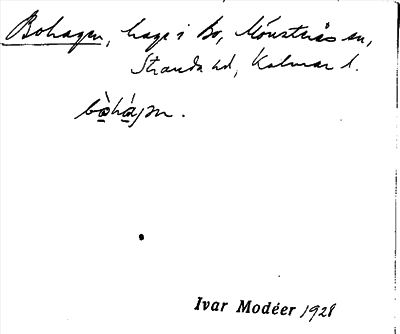 Bohagen, hage i Bo, Mönsterås sn,
Stranda hd, Kalmar l.
bòhágan.
Ivar Modéer 1928